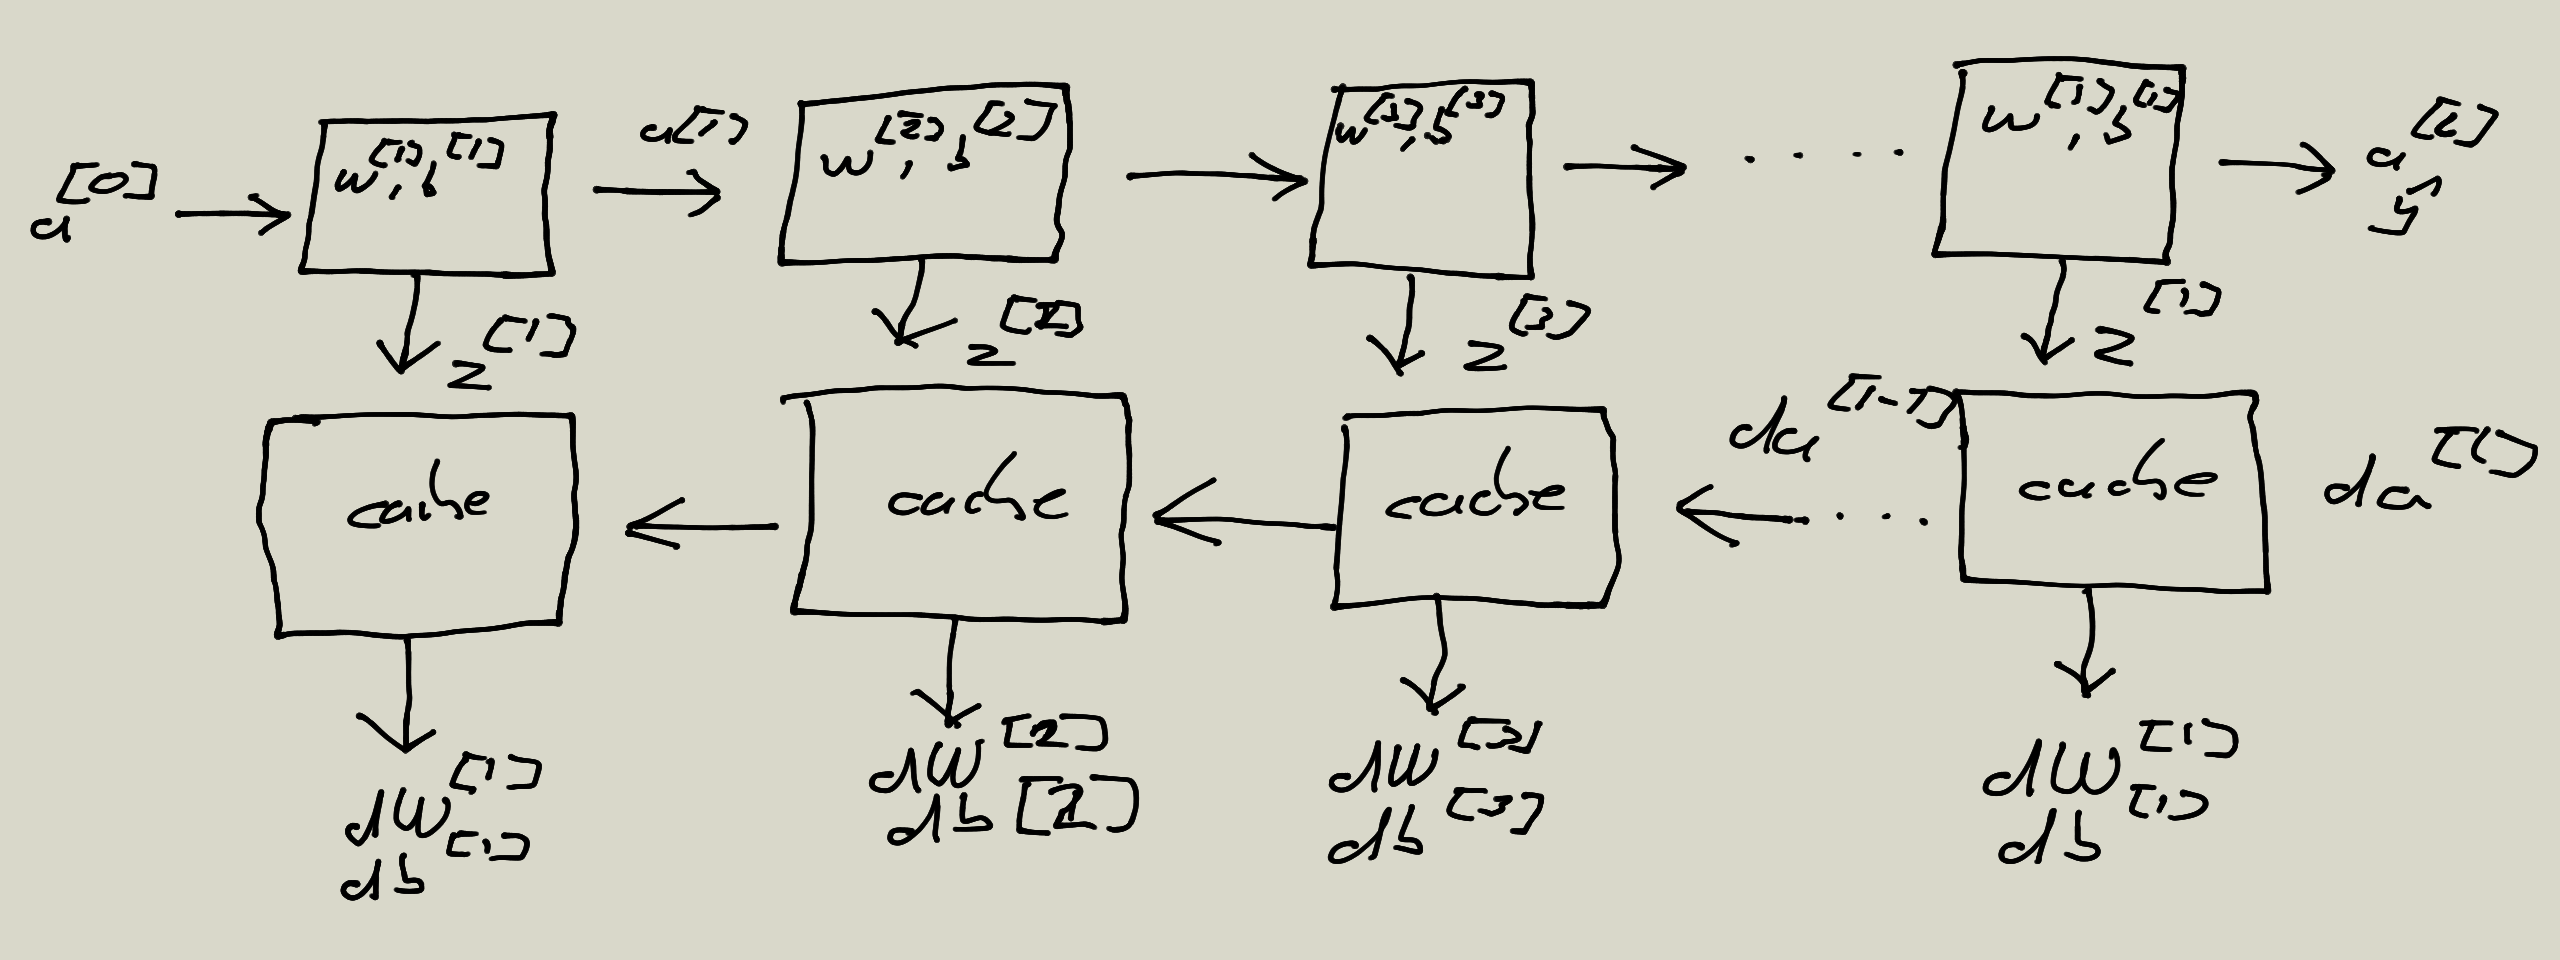 a[0]
w[1], b[1]
a[1]
w[2], b[2]
w[3], b[3]
w[l], b[l]
a[l]
ŷ
z[1]
z[2]
z[3]
z[l]
cache
cache
cache
da[l-1]
cache
da[l]
dW[1]
db[1]
dW[2]
db[2]
dW[3]
db[3]
dW[l]
db[l]